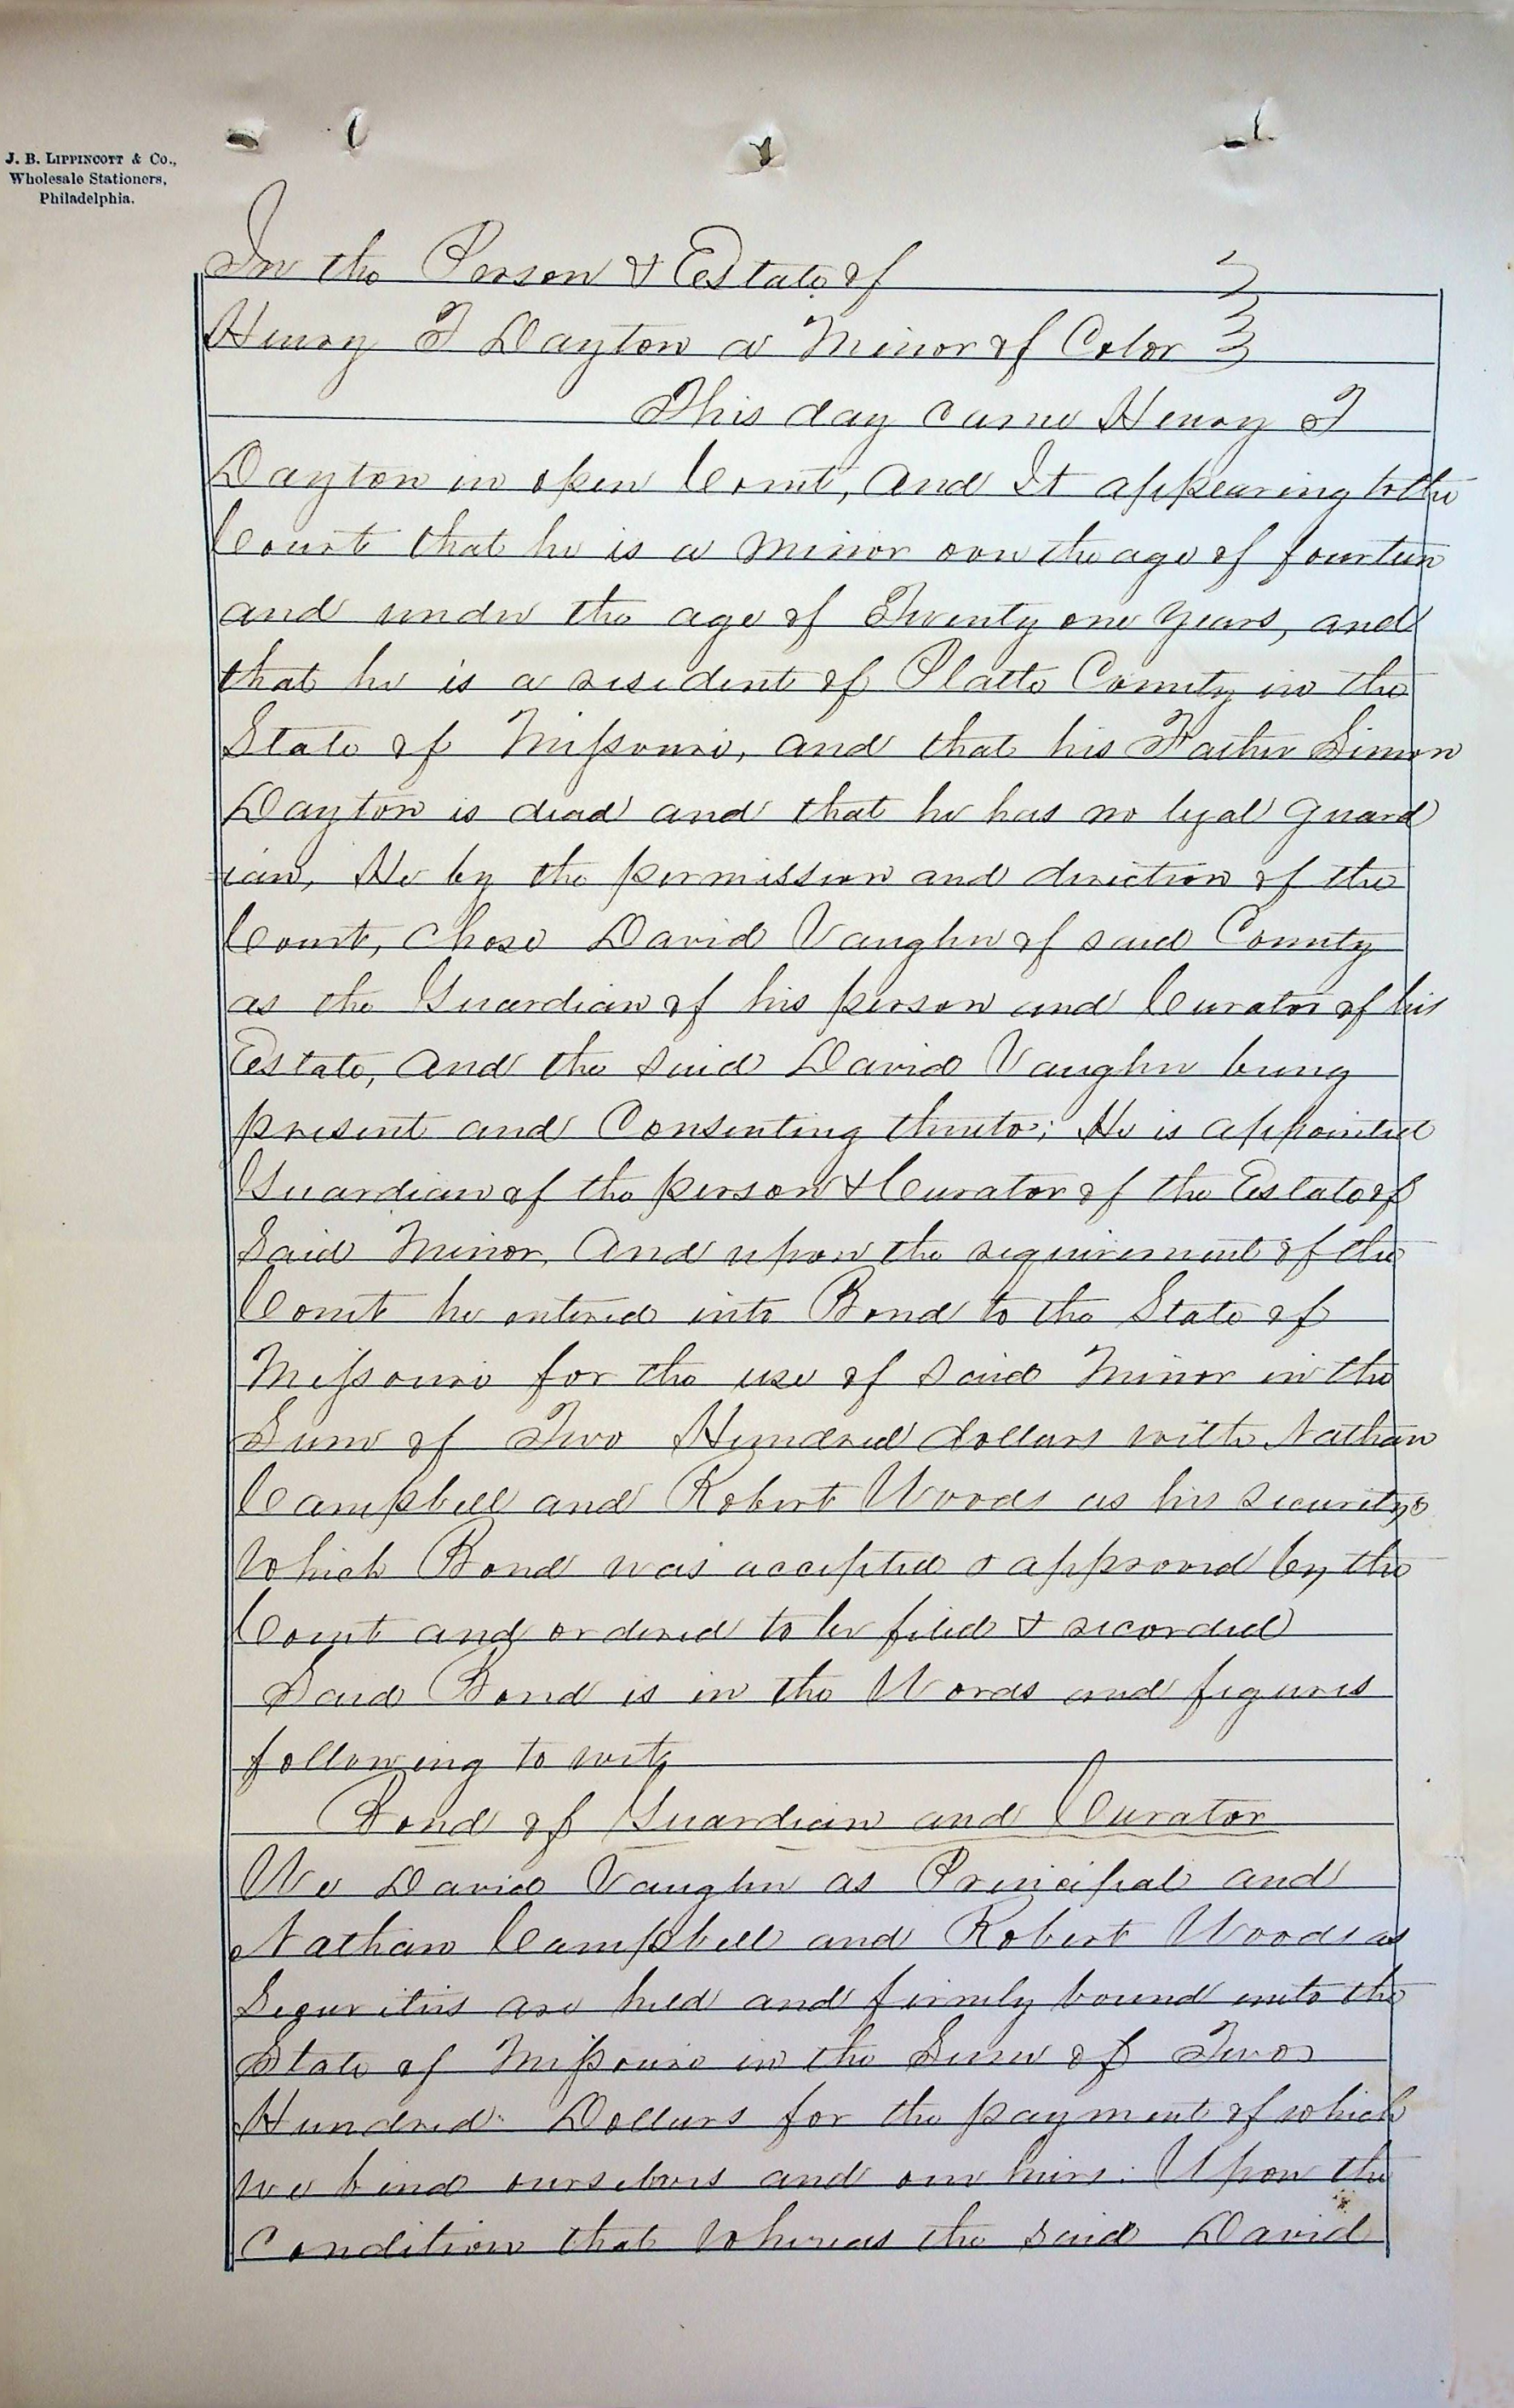 J. B. LIPPINCOTT & Co.,
Wholesale Stationers,
Philadelphia.
In the Person & Estate of
Henry T Dayton a Minor of Color
This day came Henry T
Dayton in open Court, and It appearing to the
Court that he is a minor over the age of fourteen
and under the age of Twenty one years, and
that he is a resident of Platte County in the
State of Missouri, and that his Father Simon
Dayton is dead and that he has no legal guard
ian, He by the permission and direction of the
Court, chose David Vaughn of said County
as the Guardian of his person and Curator of his
Estate, and the said David Vaughn being
present and Consenting thereto; He is appointed
Guardian of the person & Curator of the Estate of
Said Minor, and upon the requirement of the
Court he entered into Bond to the State of
Missouri for the use of said Minor in the
Sum of Two Hundred dollars with Nathan
Campbell and Robert Woods as his securitys
which Bond was accepted & approved by the
Court and ordered to be filed & recorded
Said Bond is in the Words and figures
following to wit,
Bond of Guardian and Curator
We David Vaughn as Principal and
Nathan Campbell and Robert Woods as
Securities are held and firmly bound unto the
State of Missouri in the Sum of Two
Hundred Dollars for the payment of which
we bind ourselves and our heirs. Upon the
Condition that whereas the said David